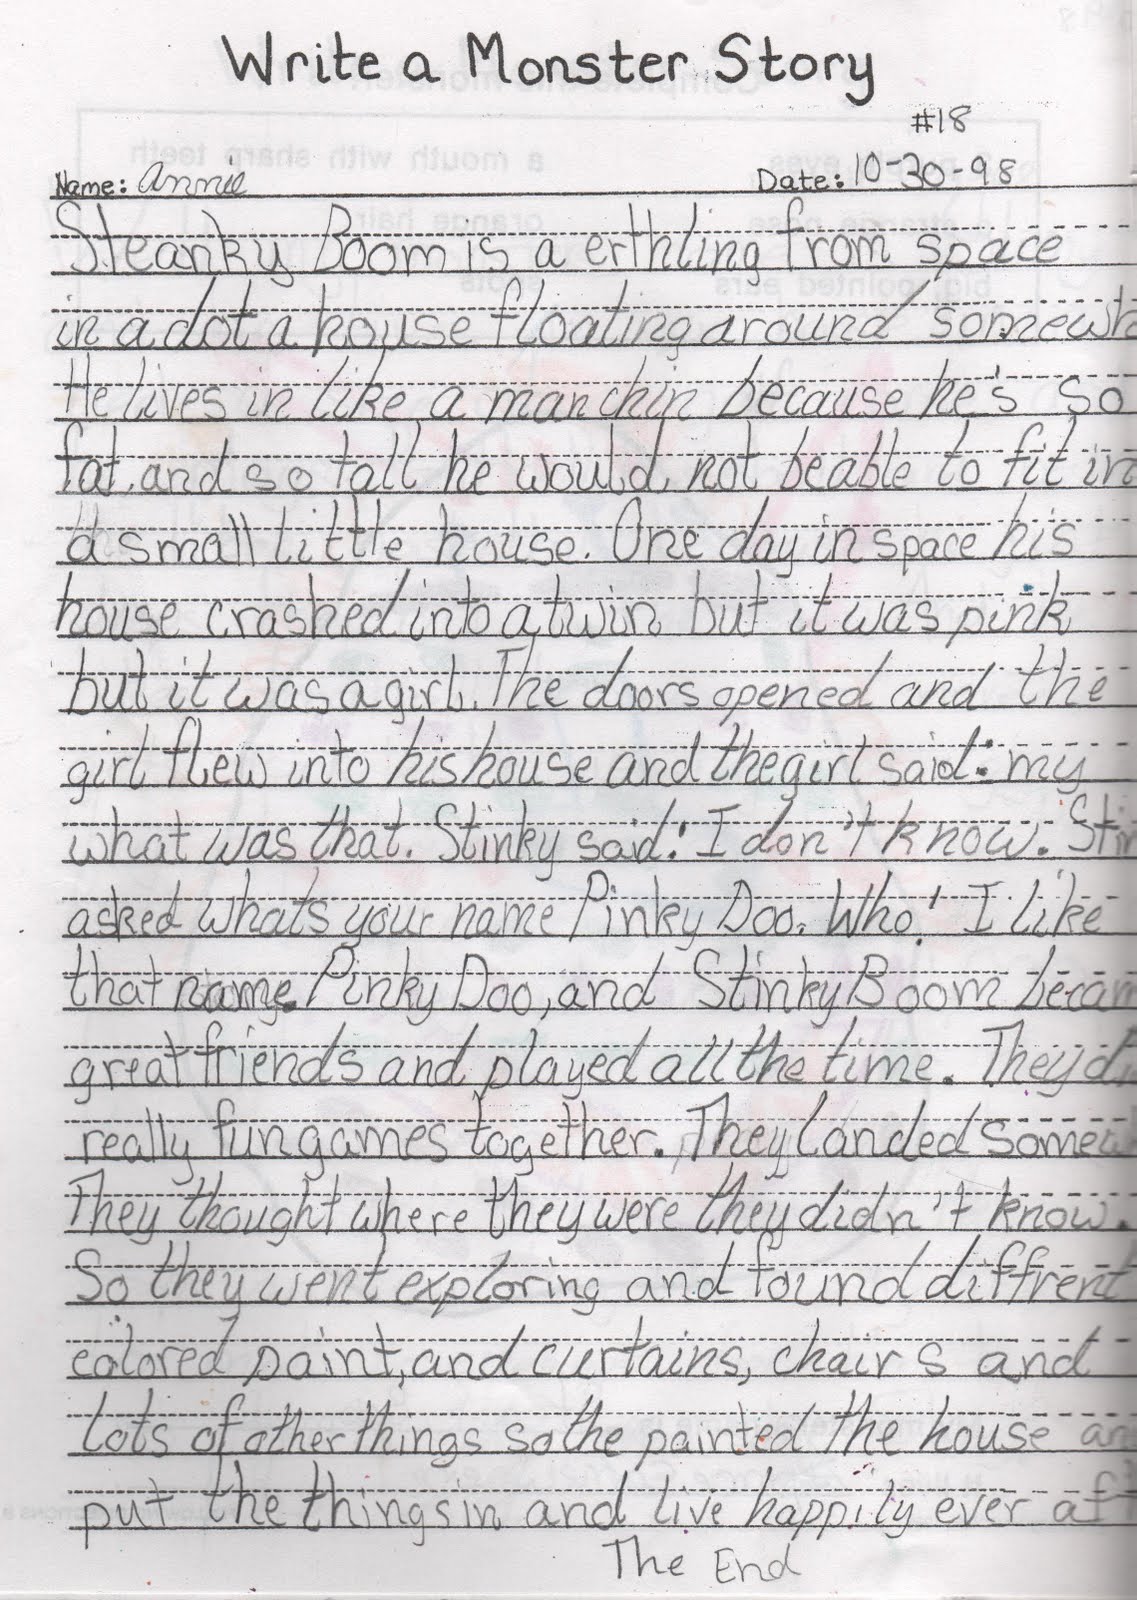 Write a Monster Story
#18
Name: Annie Date: 10-30-98
Steanky Boom is a erthling from space
in a dot a house floating around somewh
He lives in like a manchin because he's so
fat, and so tall he would, not beable to fit in
a small little house. One day in space his
house crashed into a twin but it was pink
but it was a girl. The doors opened and the
girl flew into his house and the girl said: my
what was that. Stinky said: I don't know. Stin
asked whats your name Pinky Doo. Who! I like
that name. Pinky Doo, and Stinky Boom becam
great friends and played all the time. They d
really fun games together. They landed somew
They thought where they were they didn't know.
So they went exploring and found diffrent
colored paint, and curtains, chairs and
lots of other things so the painted the house an
put the things in and live happily ever aft
The End